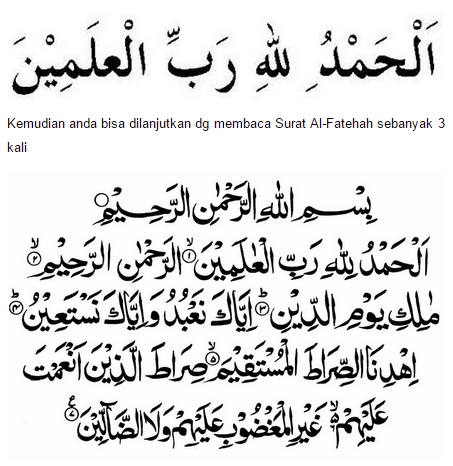 اَلْحَمْدُ لِلّٰهِ رَبِّ الْعٰلَمِيْنَ
Kemudian anda bisa dilanjutkan dg membaca Surat Al-Fatehah sebanyak 3
kali
بِسْمِ اللهِ الرَّحْمٰنِ الرَّحِيْمِ
اَلْحَمْدُ لِلّٰهِ رَبِّ الْعٰلَمِيْنَ ۙ﴿١﴾ الرَّحْمٰنِ الرَّحِيْمِ ۙ﴿٢﴾
مٰلِكِ يَوْمِ الدِّيْنِ ۗ﴿٣﴾ اِيَّاكَ نَعْبُدُ وَاِيَّاكَ نَسْتَعِيْنُ ۗ﴿٤﴾
اِهْدِنَا الصِّرَاطَ الْمُسْتَقِيْمَ ۙ﴿٥﴾ صِرَاطَ الَّذِيْنَ اَنْعَمْتَ
عَلَيْهِمْ ۙ﴿٦﴾ غَيْرِ الْمَغْضُوْبِ عَلَيْهِمْ وَلَا الضَّآلِّيْنَ ﴿٧﴾